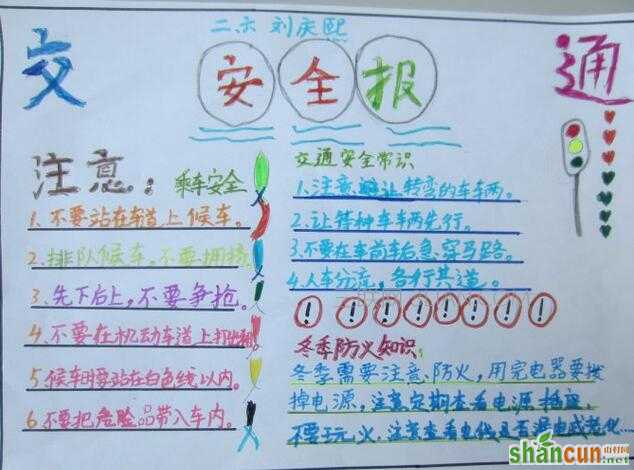 二六 刘庆熙
交 安全报 通
注意：乘车安全
1. 不要站在车道上候车。
2. 排队候车，不要拥挤
3. 先下后上，不要争抢。
4. 不要在机动车道上打出租
5 候车时要站在白色线以内。
6 不要把危险品带入车内。
交通安全常识
1. 注意避让转弯的车车两。
2. 让特种车车两先行。
3. 不要在车前车后急穿马路。
4. 人车分流，各行其道。
! ! ! ! ! ! ! !
冬季防火知识：
冬季需要注意防火，用完电器要拨
掉电源，注意定期查看电源插座，
不要玩火，注意查看电线是否漏电或老化…
shancun
山村网
.net